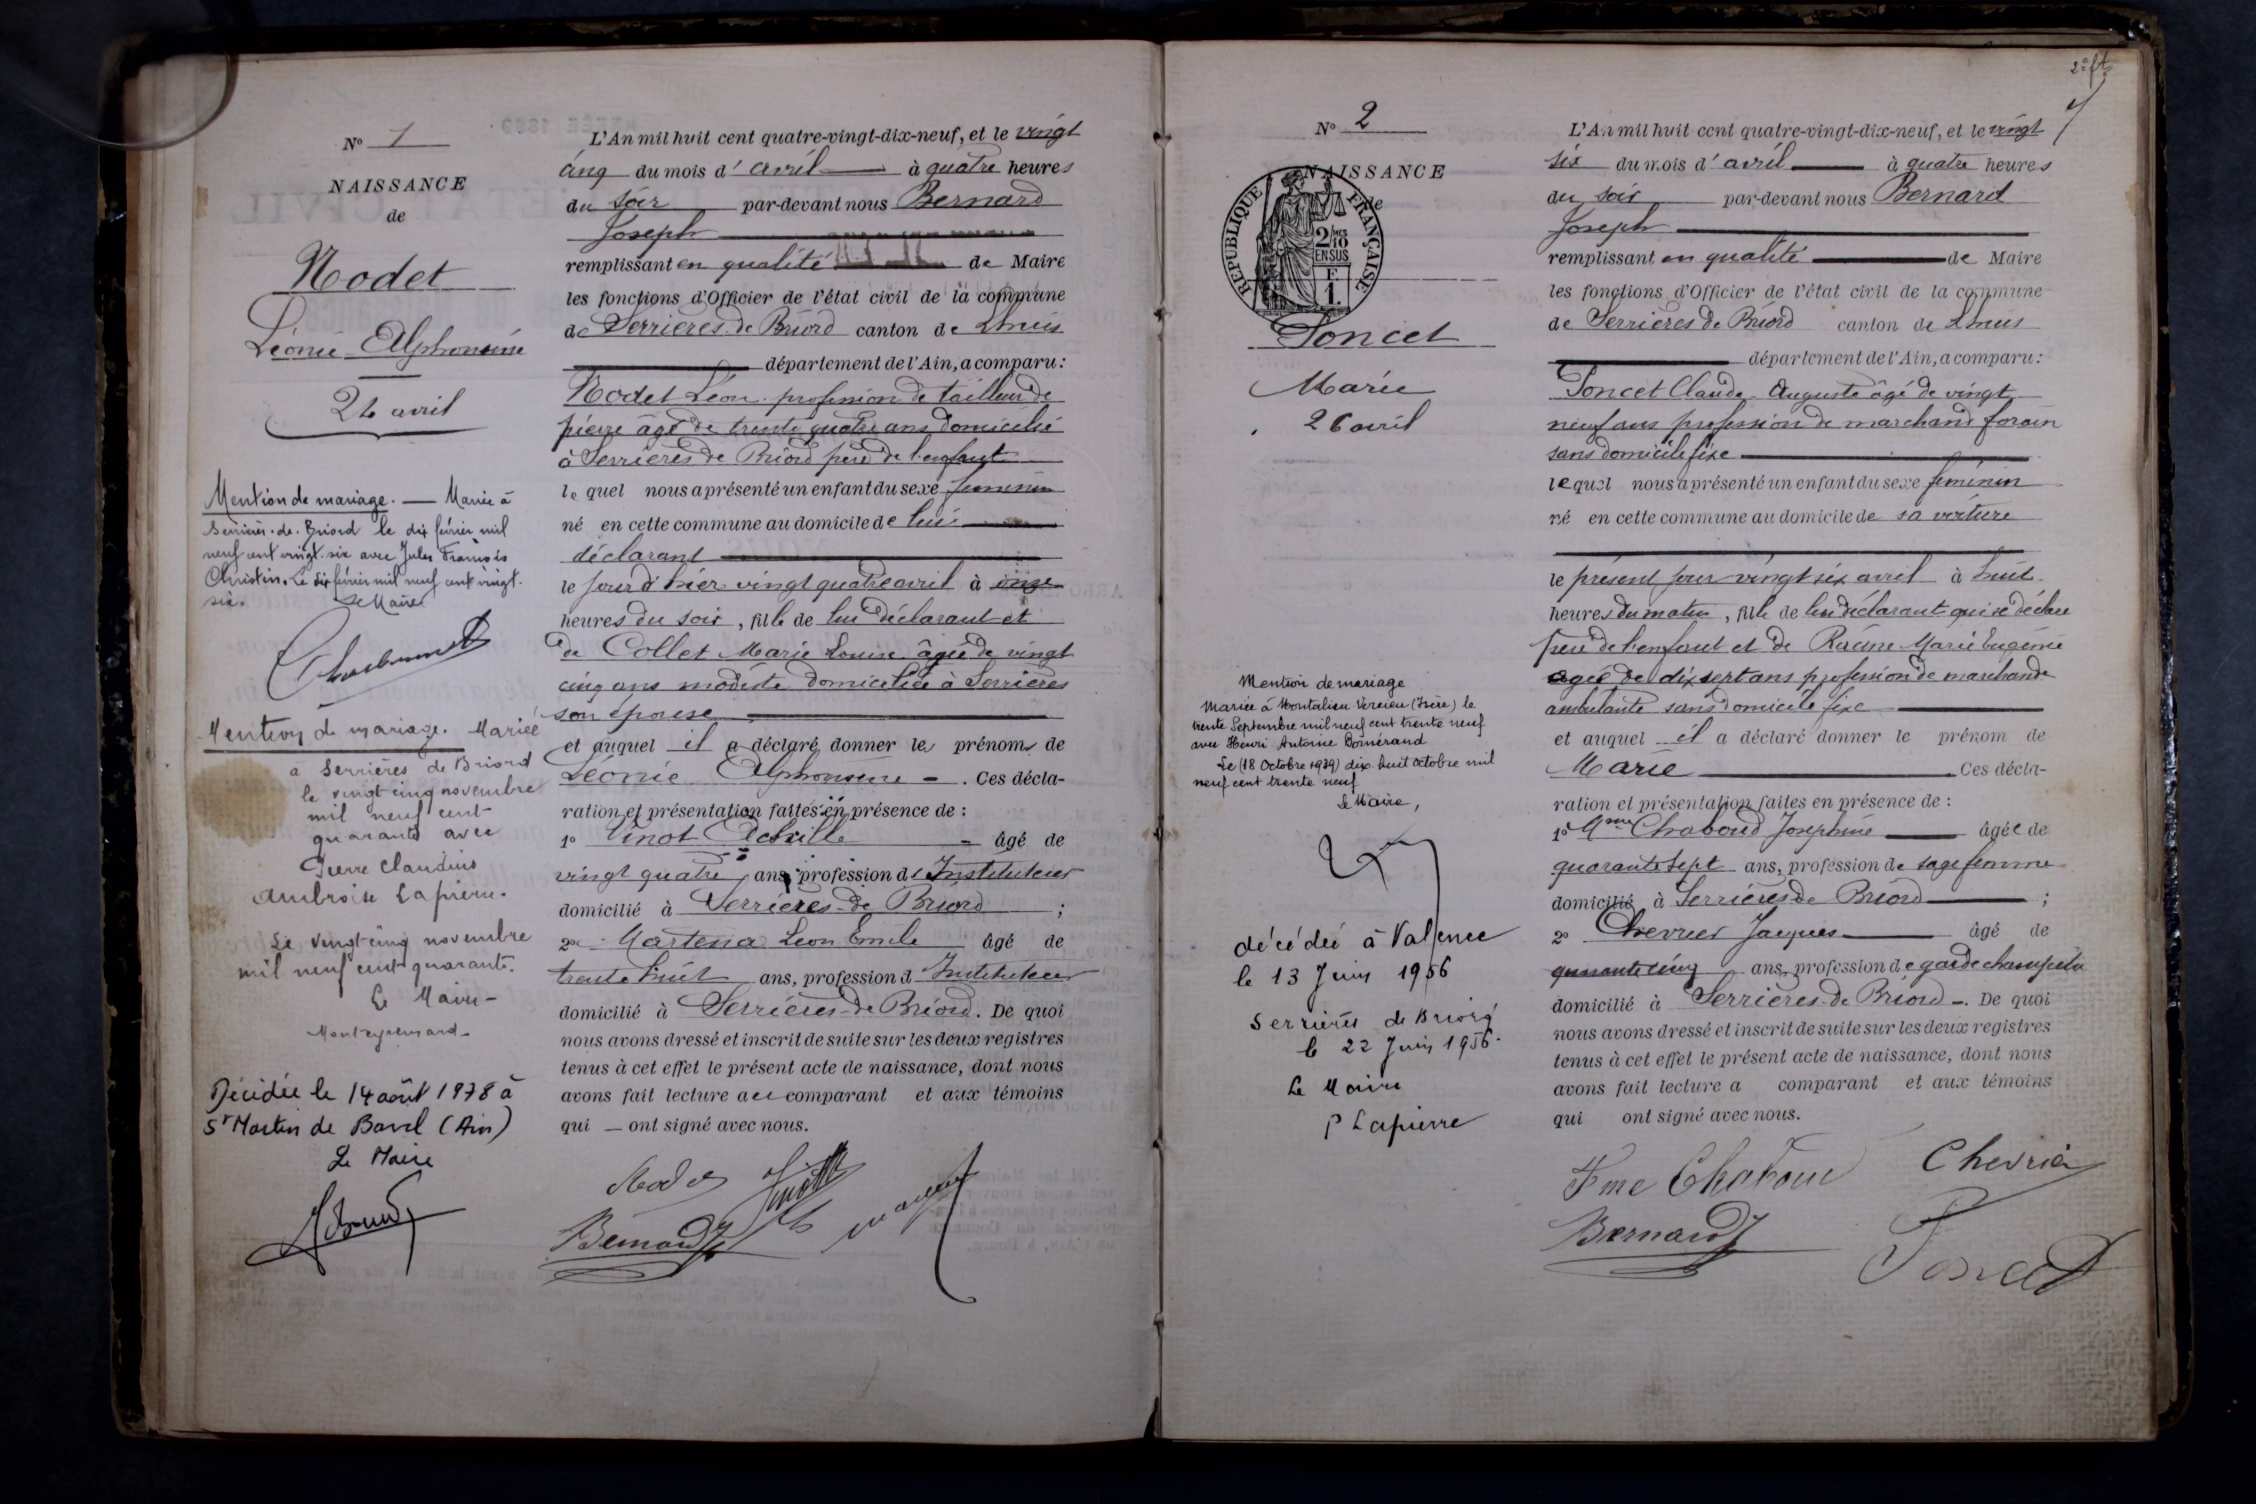 Nº 1
NAISSANCE
de
Nodet
Léonie Alphonsine
24 avril
Mention de mariage. — Mariée à
Serrières-de-Briord le dix février mil
neuf cent vingt-six avec Jules François
Christin. Le dix février mil neuf cent vingt-
six. Le Maire
Mention de mariage. Mariée
à Serrières de Briord
le vingt cinq novembre
mil neuf cent
quarante avec
Pierre Claudius
Ambroise Lapierre.
Le vingt-cinq novembre
mil neuf cent quarante.
Le Maire -
Décédée le 14 août 1978 à
St Martin de Bavel (Ain)
Le Maire
L'An mil huit cent quatre-vingt-dix-neuf, et le vingt
cinq du mois d'avril à quatre heures
du soir par-devant nous Bernard
Joseph
remplissant en qualité de Maire
les fonctions d'Officier de l'état civil de la commune
de Serrières de Briord canton de Lhuis
département de l'Ain, a comparu:
Nodet Léon profession de tailleur de
pierre âgé de trente quatre ans domicilié
à Serrières de Briord père de l'enfant
lequel nous a présenté un enfant du sexe féminin
né en cette commune au domicile de lui
déclarant
le jour d'hier vingt quatre avril à onze
heures du soir, fille de lui déclarant et
de Collet Marie Louise âgée de vingt
cinq ans modiste domiciliée à Serrières
son épouse
et auquel il a déclaré donner les prénoms de
Léonie Alphonsine - . Ces décla-
ration et présentation faites en présence de :
1º Vinot Achille - âgé de
vingt quatre ans, profession d'Instituteur
domicilié à Serrières-de Briord ;
2º Léon Emile âgé de
trente huit ans, profession d'Instituteur
domicilié à Serrières-de Briord. De quoi
nous avons dressé et inscrit de suite sur les deux registres
tenus à cet effet le présent acte de naissance, dont nous
avons fait lecture au comparant et aux témoins
qui — ont signé avec nous.
Nodet
Bernard J
2e ft
Nº 2
NAISSANCE
de
RÉPUBLIQUE FRANÇAISE
2/10 MES
EN SUS
F
1.
Poncet
Marie
26 avril
Mention de mariage
Mariée à Montalieu Vercieu (Isère) le
trente Septembre mil neuf cent trente neuf
avec Henri Antoine Bomérand
Le (18 Octobre 1939) dix huit Octobre mil
neuf cent trente neuf
Le Maire,
décédée à Valence
le 13 Juin 1956
Serrières de Briord
le 22 Juin 1956.
Le Maire
P Lapierre
L'An mil huit cent quatre-vingt-dix-neuf, et le vingt
six du mois d'avril à quatre heures
du soir par-devant nous Bernard
Joseph
remplissant en qualité de Maire
les fonctions d'Officier de l'état civil de la commune
de Serrières de Briord canton de Lhuis
département de l'Ain, a comparu:
Poncet Claude Auguste âgé de vingt
neuf ans profession de marchand forain
sans domicile fixe
lequel nous a présenté un enfant du sexe féminin
né en cette commune au domicile de sa voiture
le présent jour vingt six avril à huit
heures du matin, fille de lui déclarant qui se déclare
père de l'enfant et de Racine Marie Eugénie
âgée de dix sept ans profession de marchande
ambulante sans domicile fixe
et auquel il a déclaré donner le prénom de
Marie Ces décla-
ration et présentation faites en présence de :
1º Mme Chaboud Joséphine âgée de
quarante sept ans, profession de sage femme
domicilié à Serrières de Briord ;
2º Chevrier Jacques âgé de
quarante cinq ans, profession de garde champêtre
domicilié à Serrières-de Briord -. De quoi
nous avons dressé et inscrit de suite sur les deux registres
tenus à cet effet le présent acte de naissance, dont nous
avons fait lecture a comparant et aux témoins
qui ont signé avec nous.
Fme Chaboud Chevrier
Bernard J
Poncet